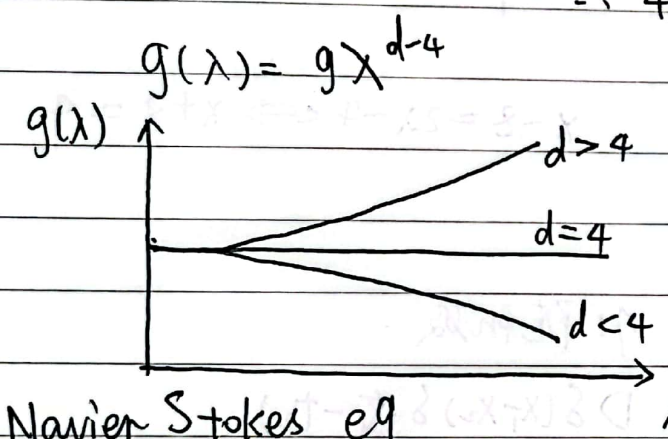 g(λ) = gλ^{d-4}
g(λ)
d > 4
d = 4
d < 4
Navier Stokes eq